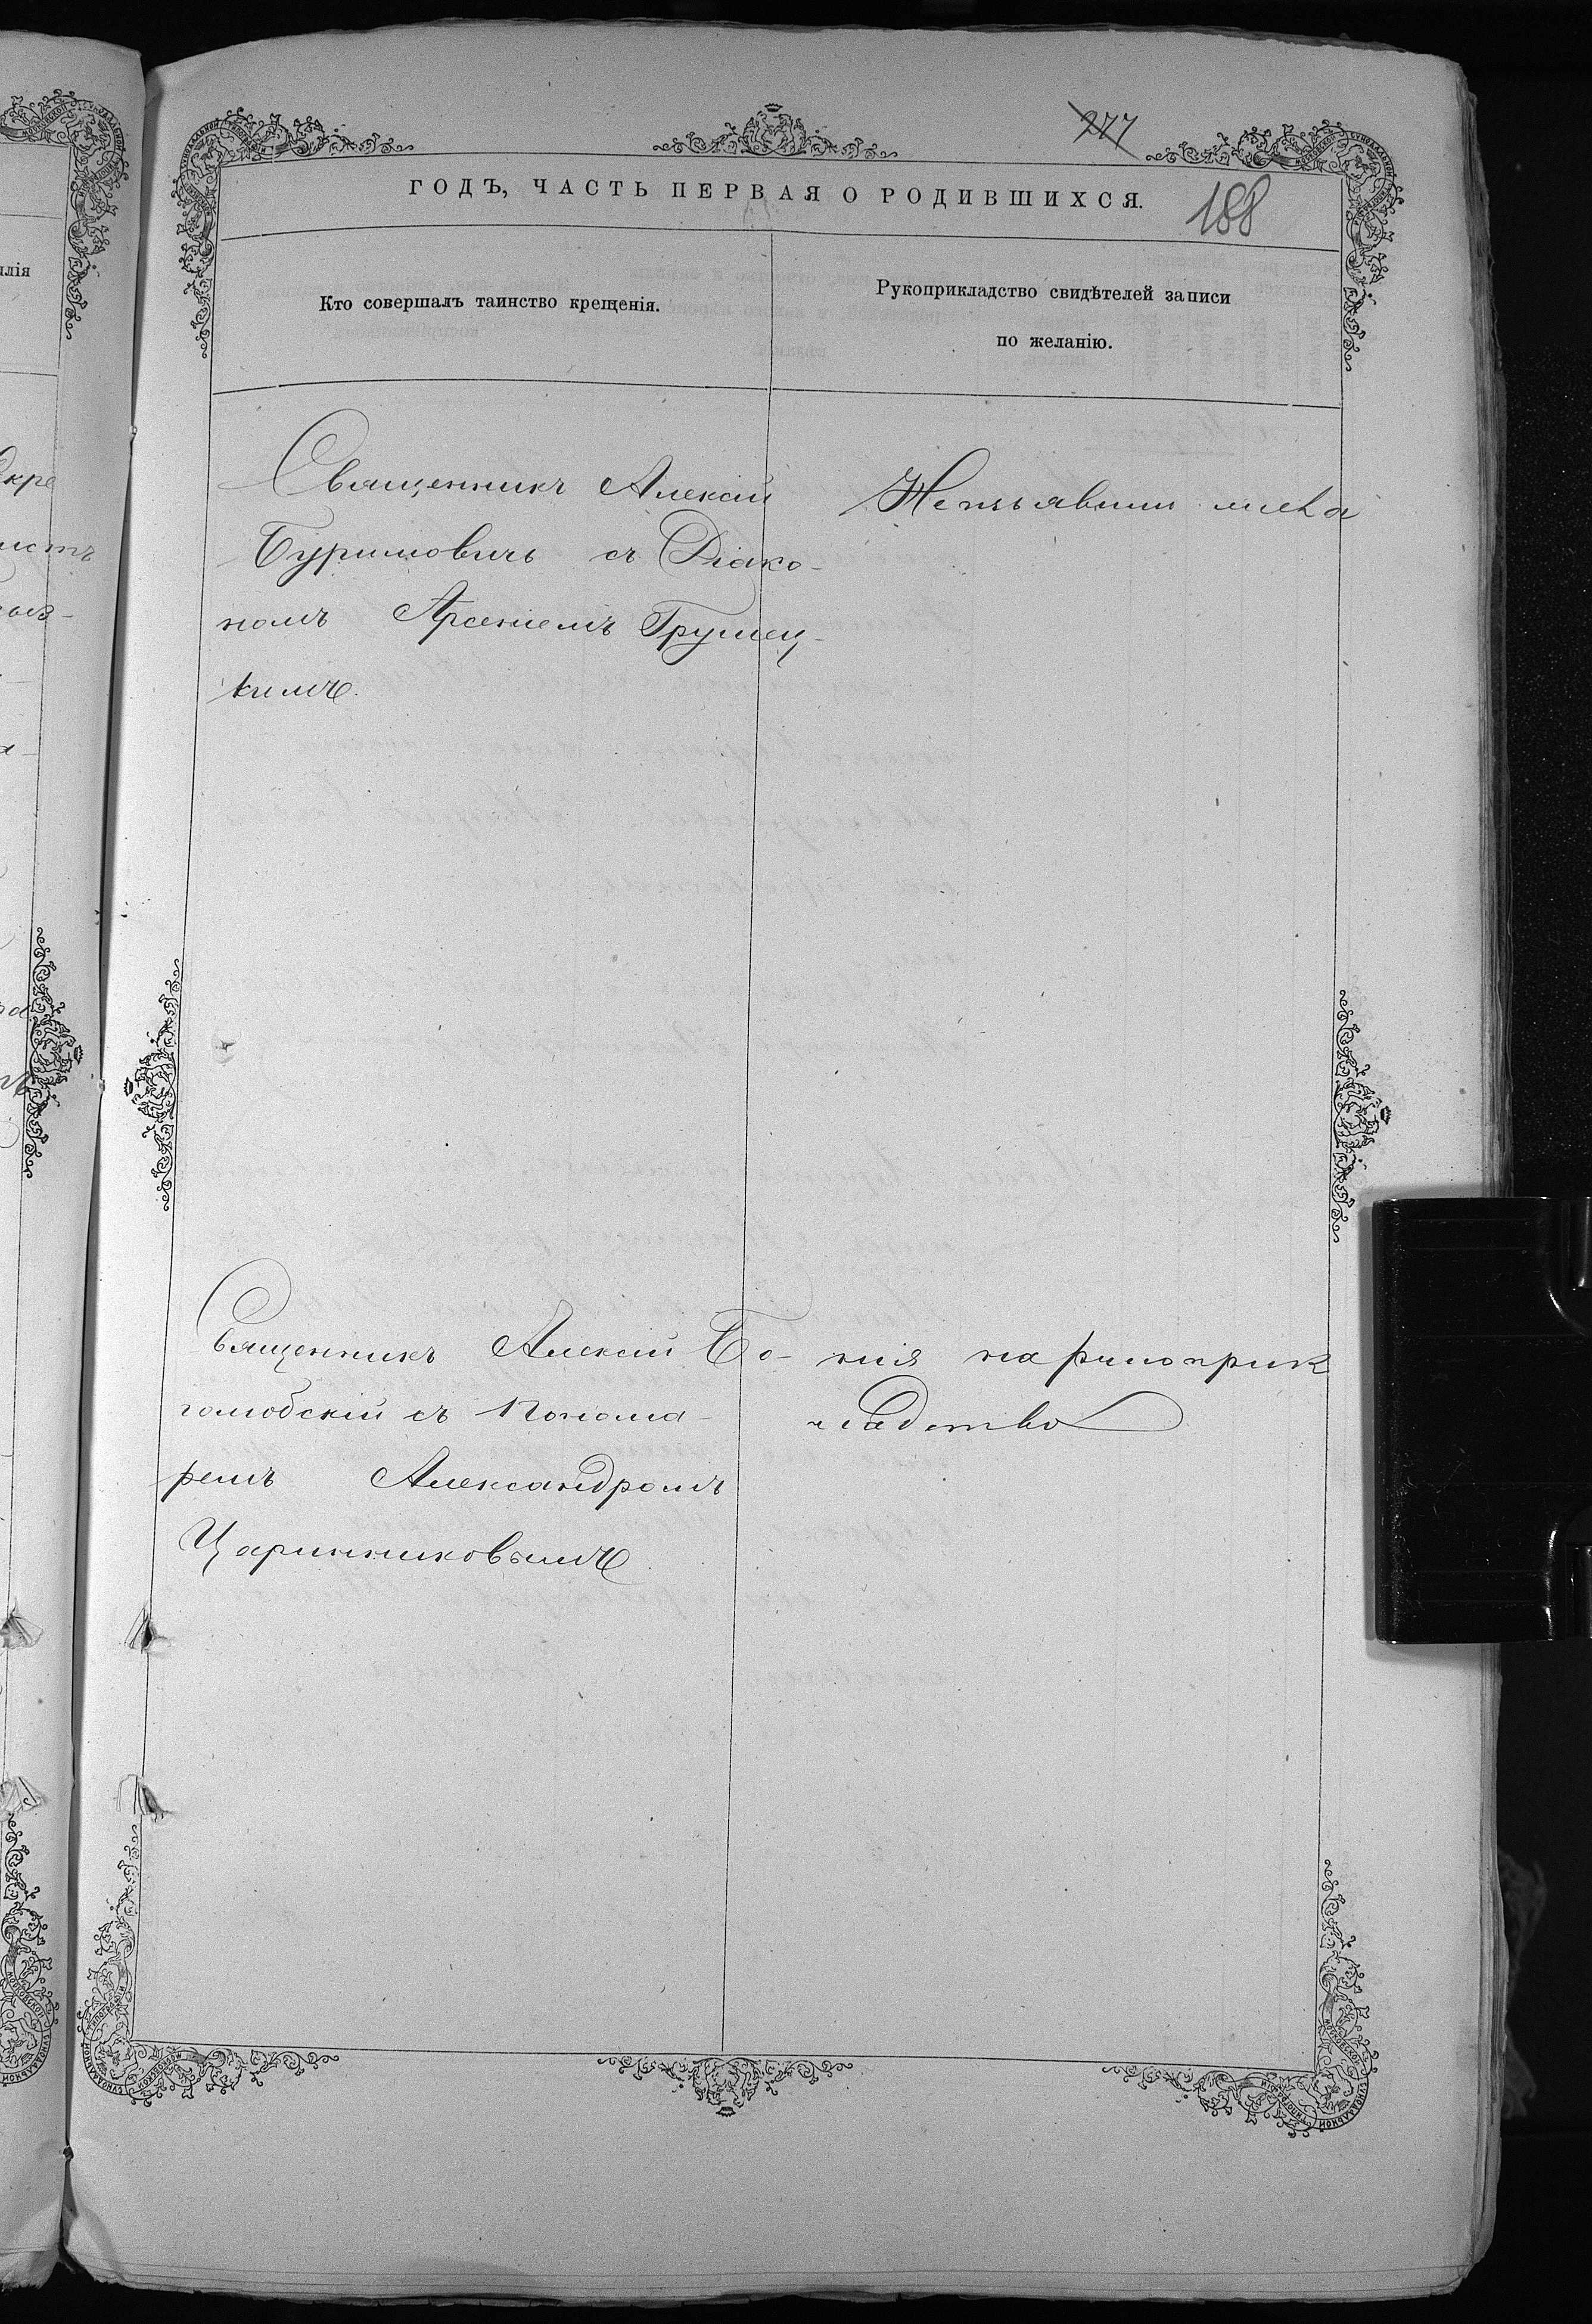 277
ГОДЪ, ЧАСТЬ ПЕРВАЯ О РОДИВШИХСЯ.
188
илія
Кто совершалъ таинство крещенія.
Рукоприкладство свидѣтелей записи
по желанію.
Священникъ Алексій
Буримовичъ съ Діако-
номъ Арсеніемъ Грушец-
кимъ.
Неизъявили жела
Священникъ Алексій Бо-
голюбскій съ Понома-
ремъ Александромъ
Царинниковымъ.
нія на рукоприк
ладство